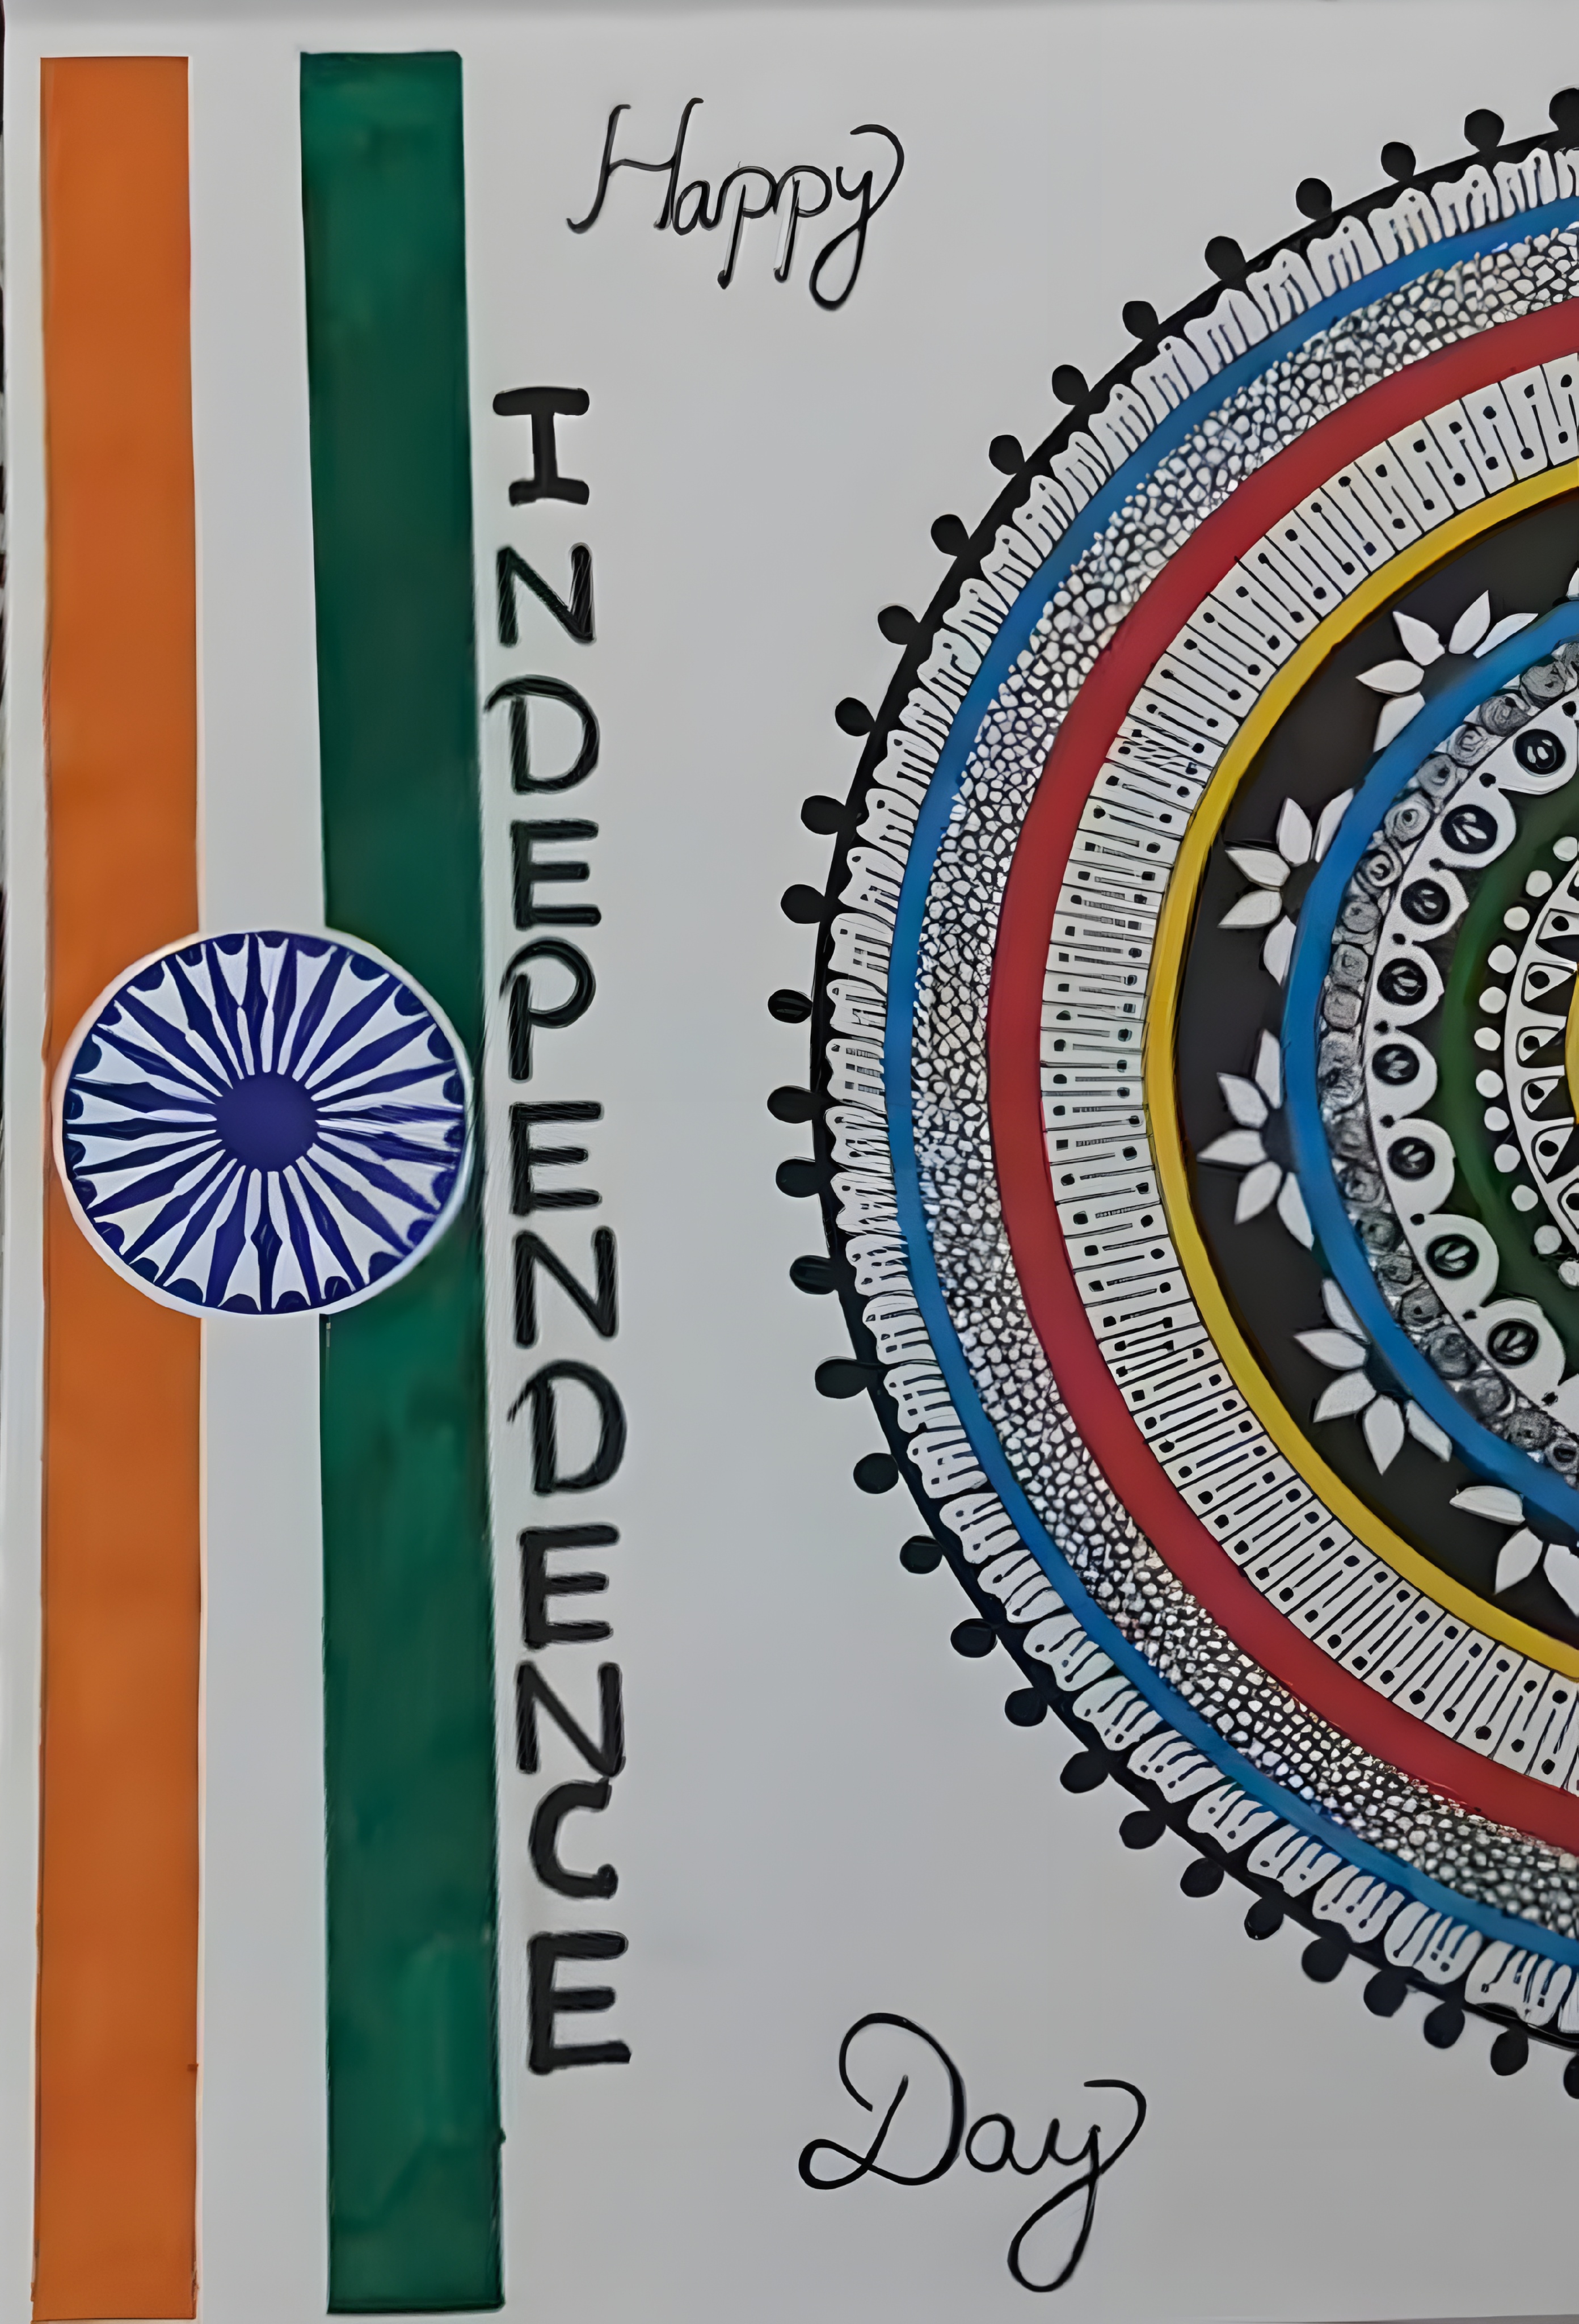 Happy
INDEPENDENCE
Day